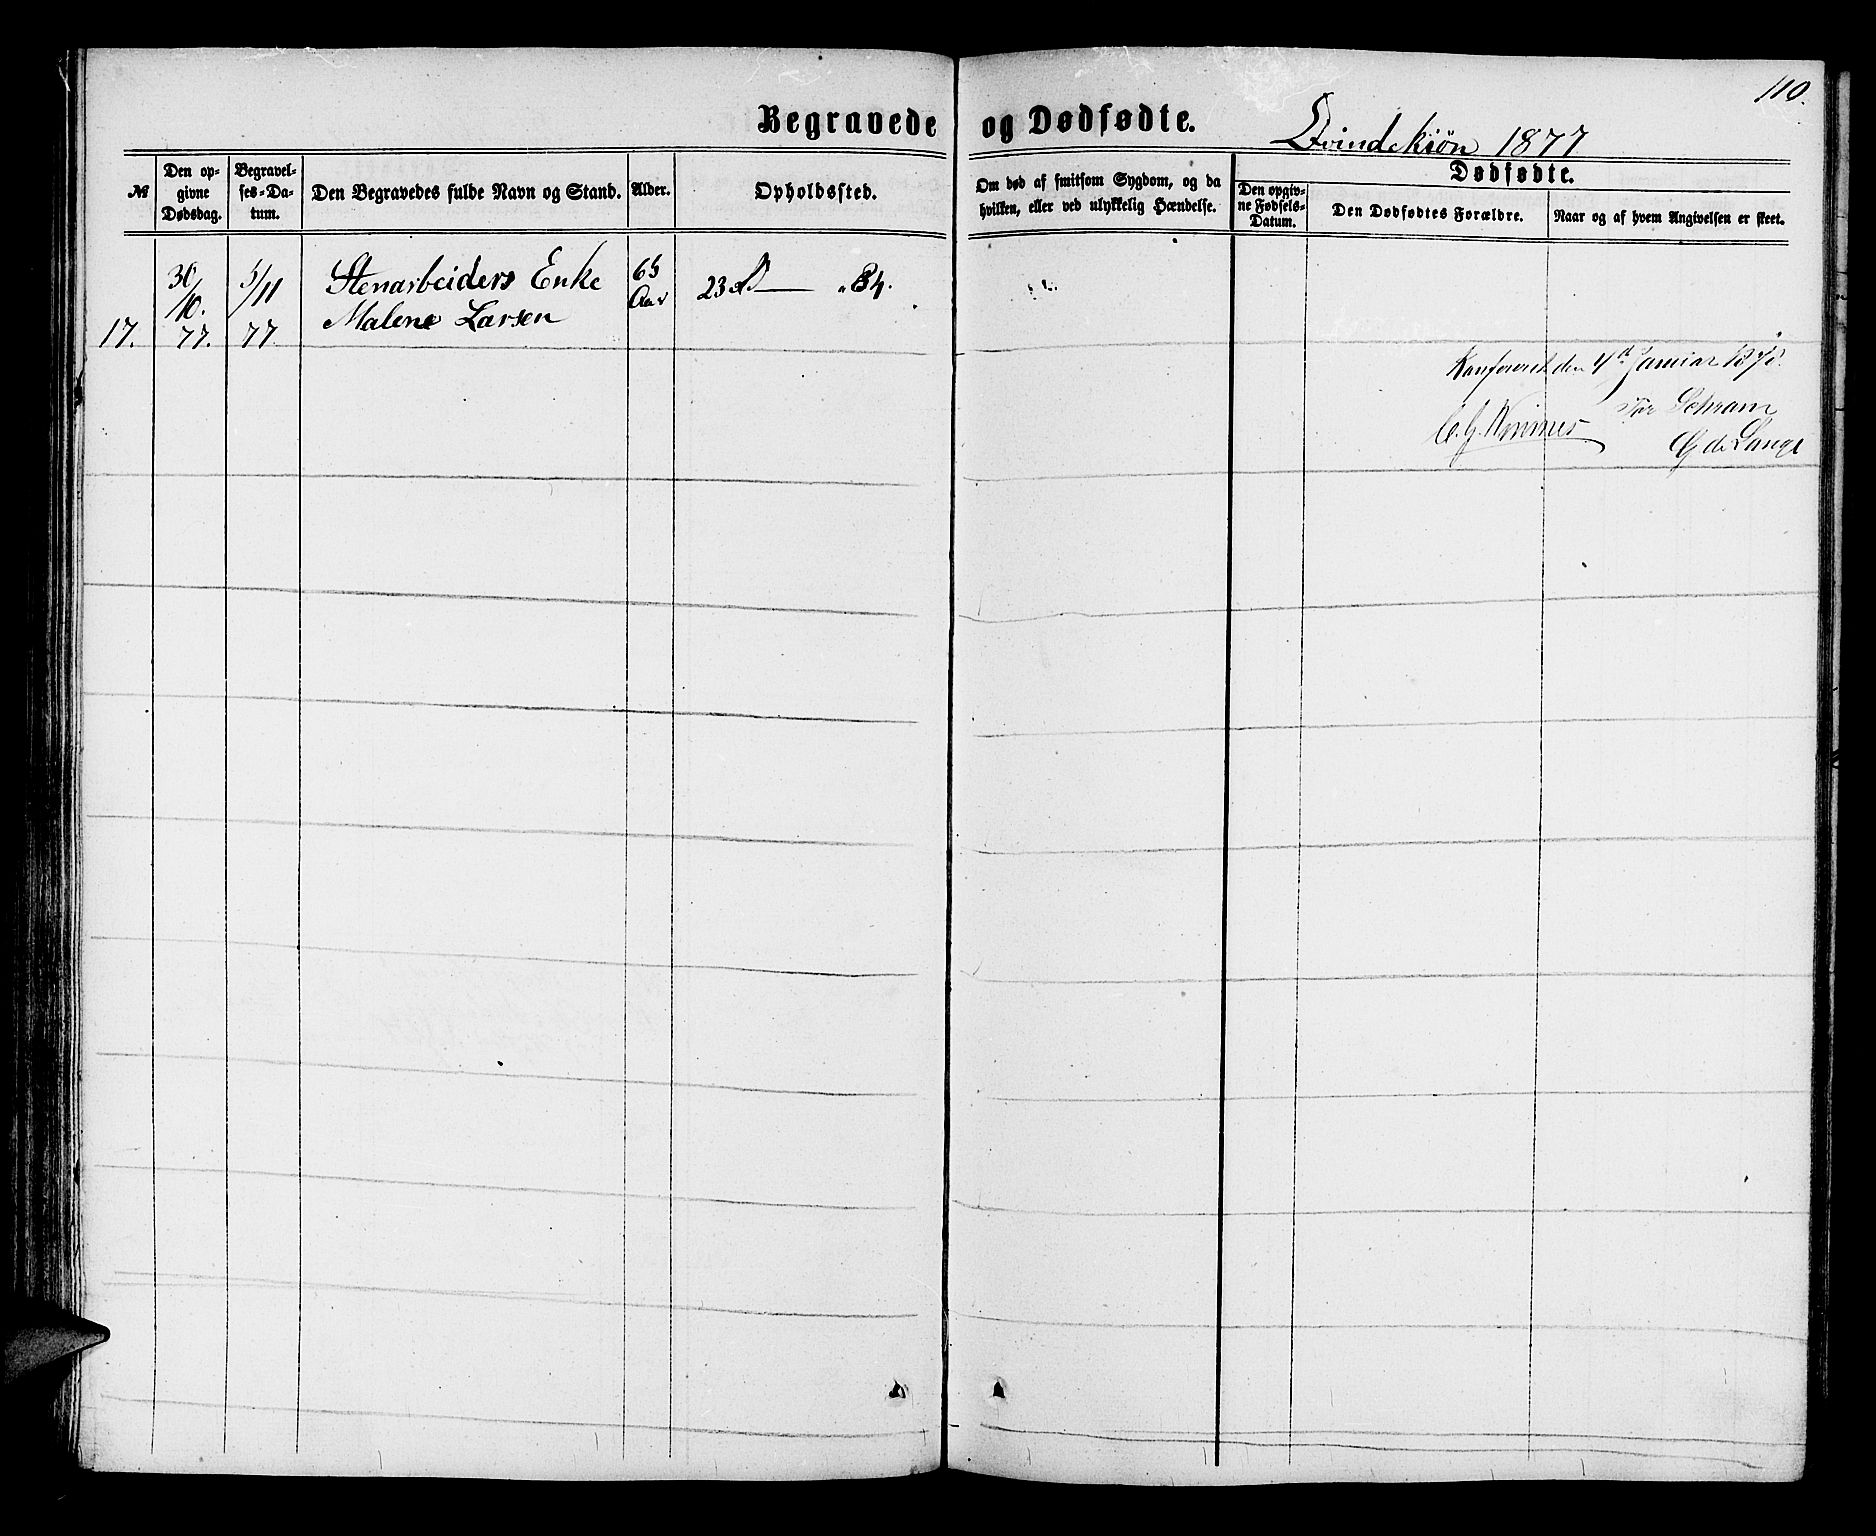 110.
Begravede og Dødfødte. Qvindekiön 1877
№
Den op-
givne
Dødsdag.
Begravel-
ses-Da-
tum.
Den Begravedes fulde Navn og Stand.
Alder.
Opholdssted.
Om død af smitsom Sygdom, og da
hvilken, eller ved ulykkelig Hændelse.
Dødfødte.
Den opgiv-
ne Fødsels-
Datum.
Den Dødfødtes Forældre.
Naar og af hvem Angivelsen er skeet.
17.
30/10.
77.
5/11
77
Stenarbeiders Enke
Malene Larsen
65
Aar
23 " 84.
Konfereret den 4d Januar 1878.
Schram
G de Lange